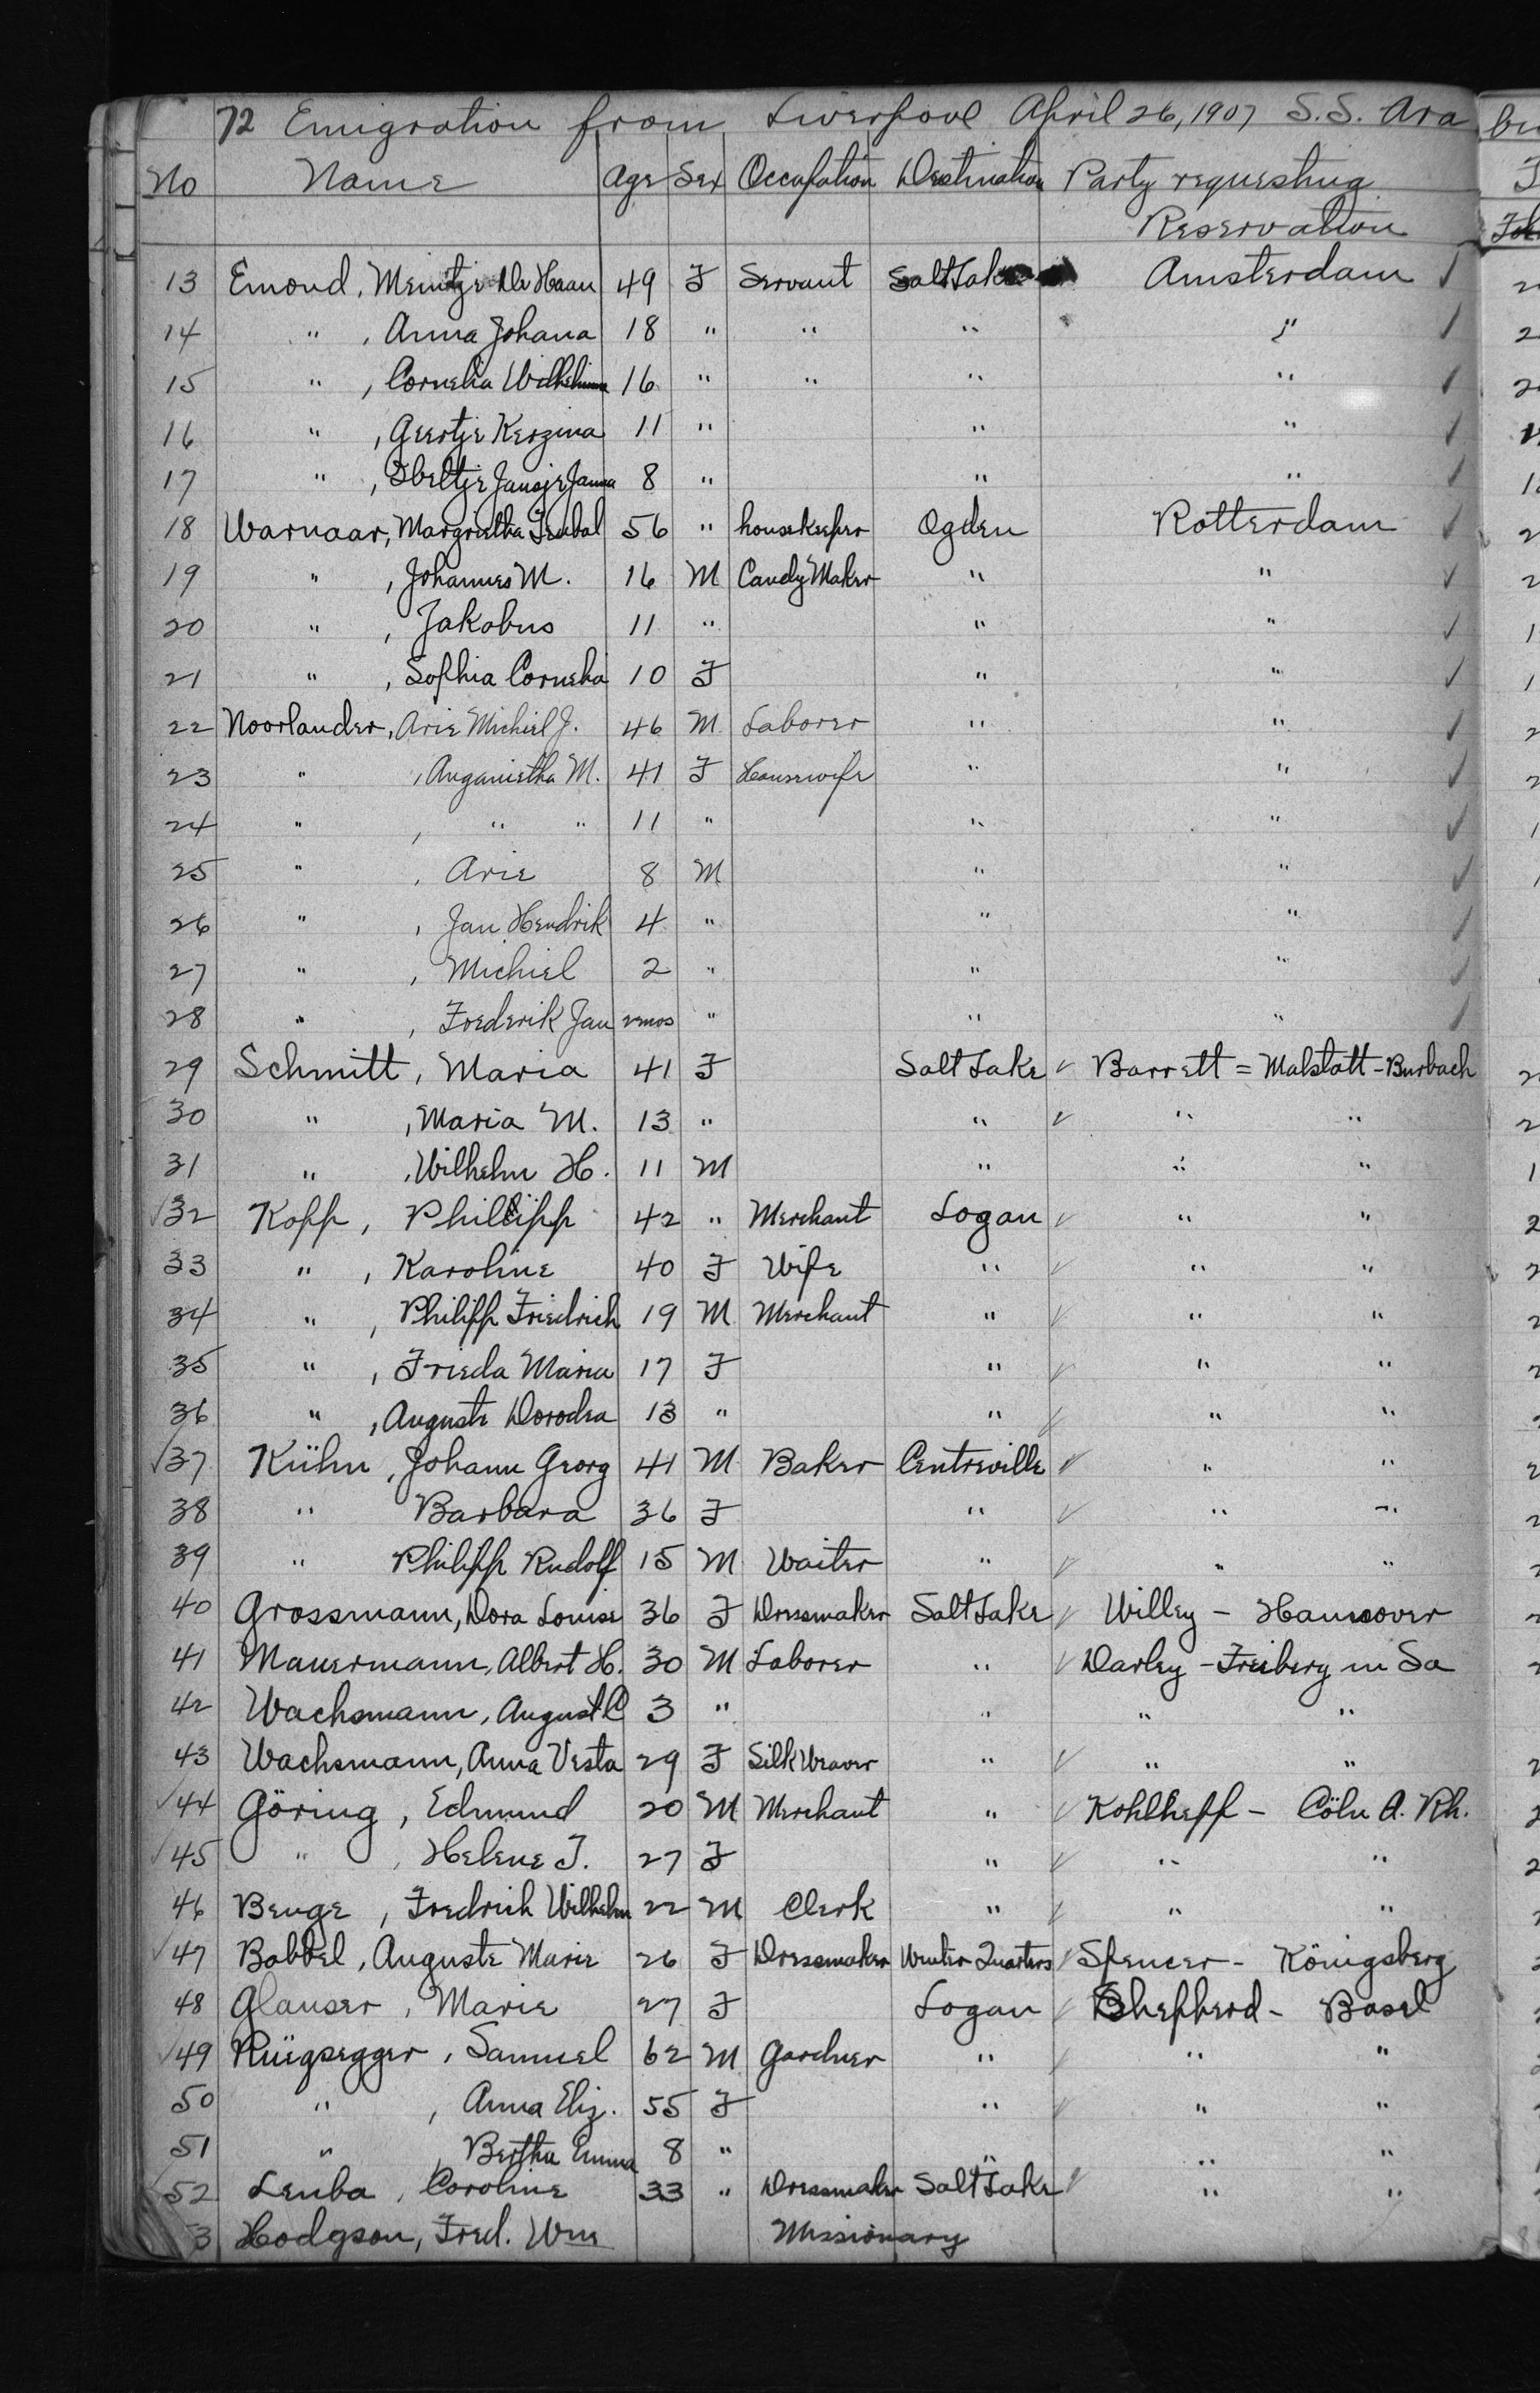 72 Emigration from Liverpool April 26, 1907 S.S. Ara
No Name Age Sex Occupation Destination Party requesting
Reservation
13 Emond, Meintje De Haan 49 F Servant Salt Lake Amsterdam ✓
14 " , Anna Johana 18 " " " " ✓
15 " , Cornelia Wilhelmina 16 " " " " ✓
16 " , Geertje Kerzina 11 " " " ✓
17 " , Ibeltje Jansje Janna 8 " " " ✓
18 Warnaar, Margrietha Teubal 56 " housekeeper Ogden Rotterdam ✓
19 " , Johannes M. 16 M Candy Maker " " ✓
20 " , Jakobus 11 " " " ✓
21 " , Sophia Cornelia 10 F " " ✓
22 Noorlander, Arie Michiel J. 46 M Laborer " " ✓
23 " , Anganietha M. 41 F Housewife " " ✓
24 " , " " 11 " " " ✓
25 " , Arie 8 M " " ✓
26 " , Jan Hendrik 4 " " " ✓
27 " , Michiel 2 " " " ✓
28 " , Frederik Jan mos " " " ✓
29 Schmitt, Maria 41 F Salt Lake ✓ Barrett = Malstatt-Burbach
30 " , Maria M. 13 " " ✓ " "
31 " , Wilhelm H. 11 M " " "
✓32 Kopp, Phillipp 42 " Merchant Logan ✓ " "
33 " , Karoline 40 F Wife " ✓ " "
34 " , Philipp Friedrich 19 M Merchant " ✓ " "
35 " , Frieda Maria 17 F " ✓ " "
36 " , Auguste Dorodea 13 " " ✓ " "
✓37 Kühn, Johann Georg 41 M Baker Centreville ✓ " "
38 " Barbara 36 F " ✓ " "
39 " Philipp Rudolf 15 M Waiter " ✓ " "
40 Grossmann, Dora Louise 36 F Dressmaker Salt Lake ✓ Willey - Hannover
41 Mauermann, Albert H. 30 M Laborer " ✓ Darley - Freiberg in Sa
42 Wachsmann, August C 3 " " " "
43 Wachsmann, Anna Vesta 29 F Silk Weaver " ✓ " "
✓44 Göring, Edmund 20 M Merchant " ✓ Kohlhepp - Cöln A. Rh.
✓45 " , Helene J. 27 F " ✓ " "
46 Benge, Fredrich Wilhelm 22 M Clerk " ✓ " "
✓47 Bobbel, Auguste Marie 26 F Dressmaker Winter Quarters ✓ Spencer - Königsberg
48 Glauser, Marie 27 F Logan ✓ Shepherd - Basel
✓49 Rüegsegger, Samuel 62 M Gardner " ✓ " "
50 " , Anna Eliz. 55 F " ✓ " "
51 " , Bertha Emma 8 " " " "
✓52 Leuba, Caroline 33 " Dressmaker Salt Lake ✓ " "
3 Hodgson, Fred. Wm Missionary